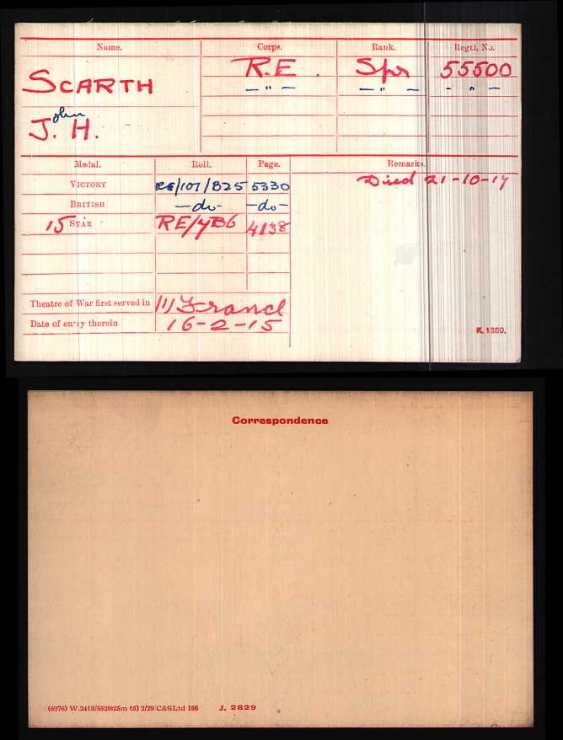 Name. Corps. Rank. Regtl. No.
SCARTH R.E. Spr 55500
— " — — " — - " -
John
J. H.
Medal. Roll. Page. Remarks.
VICTORY RE/101/B25 5330 Died 21-10-17
BRITISH —do— —do—
15 STAR RE/7B6 4138
Theatre of War first served in (1) France
Date of entry therein 16-2-15
K. 1380.
Correspondence
(6976) W.2413/ 2/28 C&S Ltd J. 2829